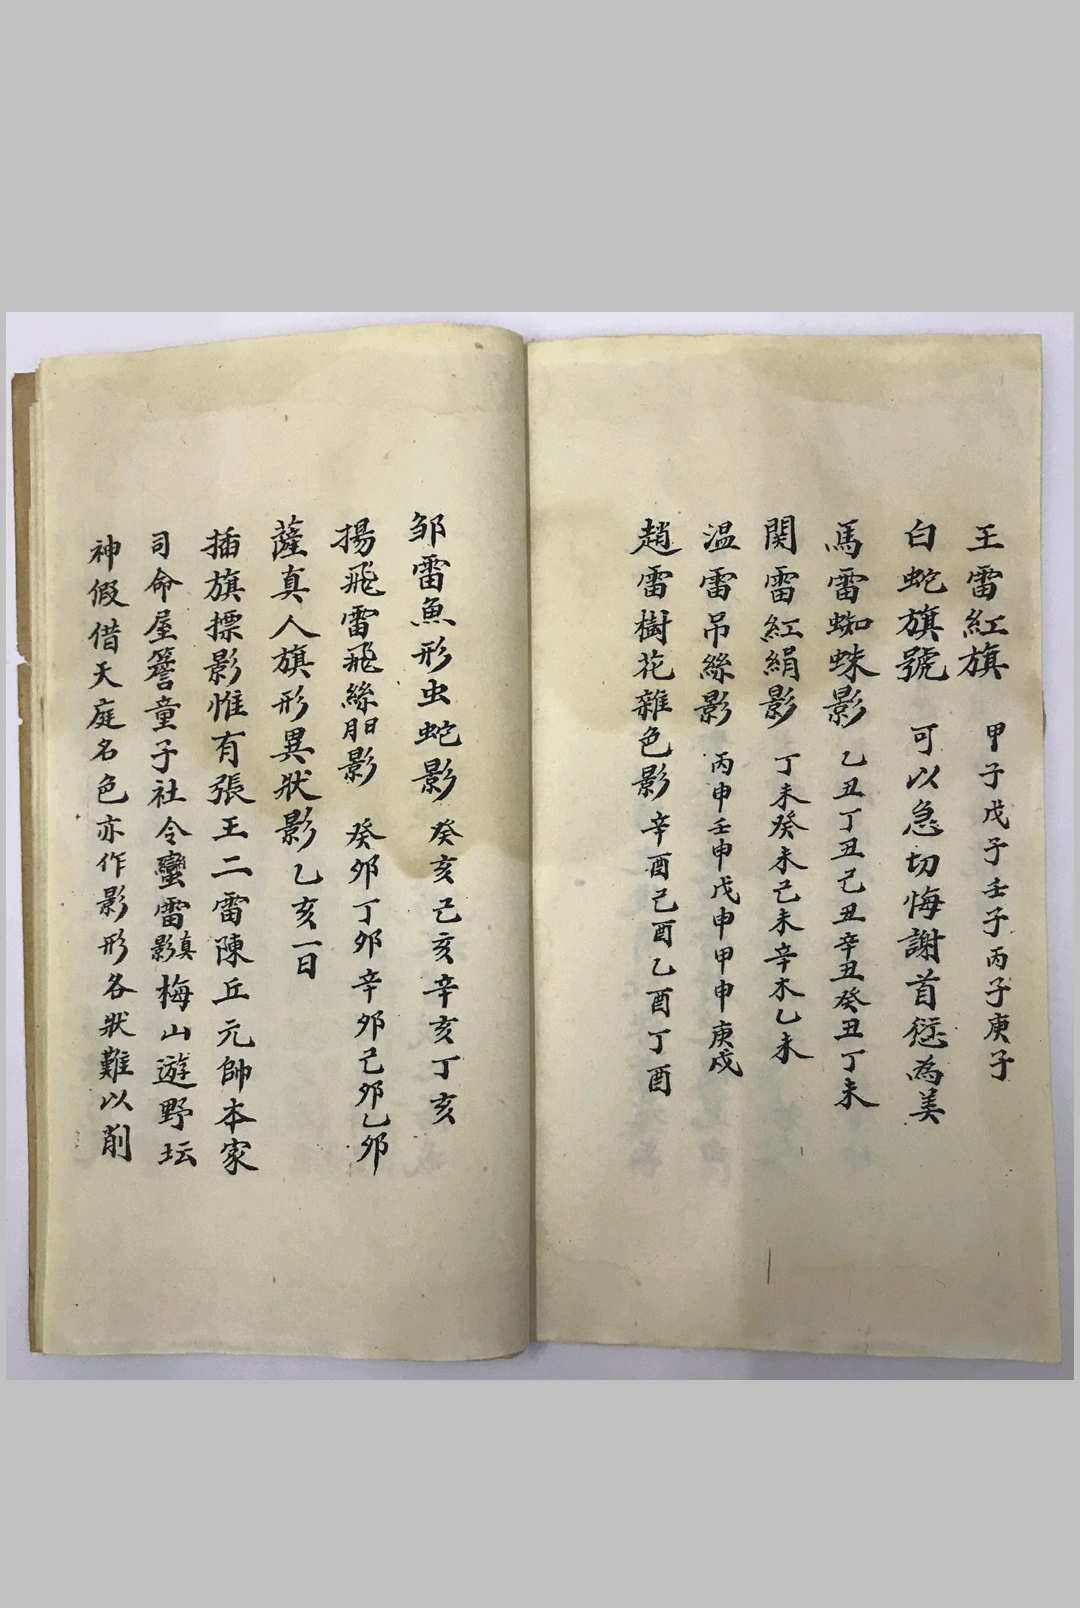 王雷紅旗 甲子戊子壬子丙子庚子
白蛇旗號 可以急切悔謝首愆為美
馬雷蜘蛛影 乙丑丁丑己丑辛丑癸丑丁未
関雷紅絹影 丁未癸未己未辛未乙未
温雷吊絲影 丙申壬申戊申甲申庚戌
趙雷樹花雜色影 辛酉己酉乙酉丁酉
邹雷魚形虫蛇影 癸亥己亥辛亥丁亥
揚飛雷飛絲影 癸卯丁卯辛卯己卯乙卯
薩真人旗形異狀影 乙亥一日
插旗摽影惟有張王二雷陳丘元帥本家
司命屋簷童子社令蠻雷真影梅山遊野坛
神假借天庭名色亦作影形各狀難以削